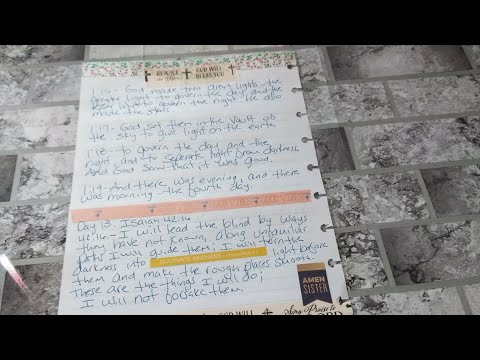 REJOICE
GOD WILL
BLESS YOU
1:16- God made two great lights- the
greater light to govern the day and the
lesser light to govern the night. He also
made the stars.
1:17- God set them in the vault of
the sky to give light on the earth
1:18- to govern the day and the
night, and to seperate light from darkness.
And God saw that it was good.
1:19- And there was evening, and there
was morning- the fourth day.
Day 13: Isaiah 42:16
42:16- I will lead the blind by ways
they have not known, along unfamiliar
paths I will guide them; I will turn the
darkness into light before
them and make the rough places smooth.
These are the things I will do;
I will not forsake them.
AMEN
SISTER
GOD WILL
Sing Praise to